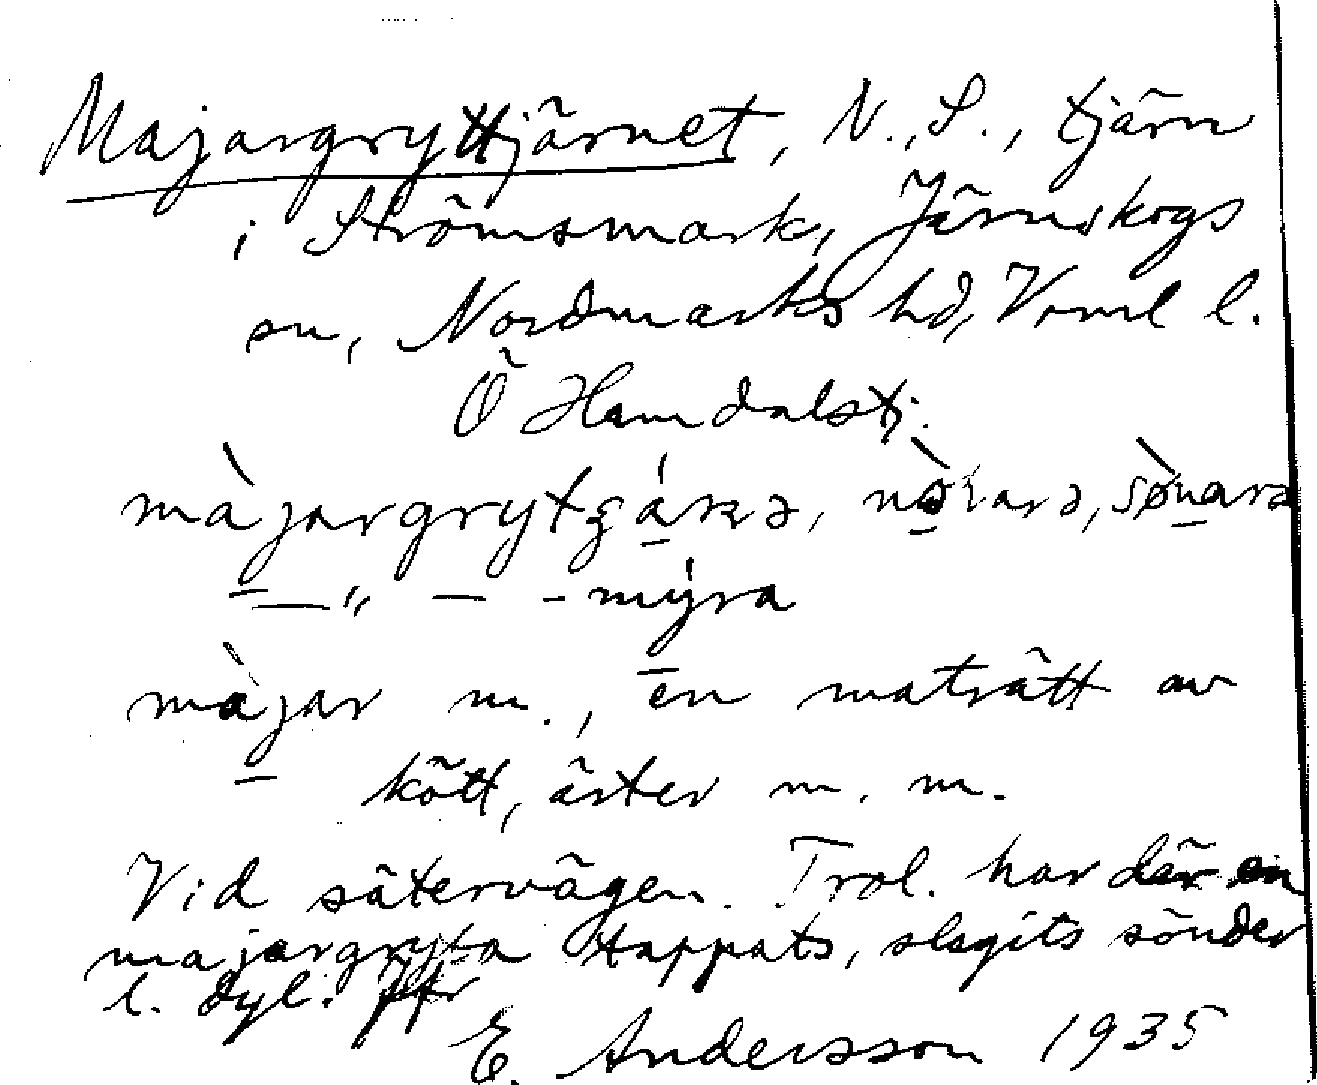 Majargryttjärnet, N., S., tjärn
i Strömsmark, Järnskogs
sn, Nordmarks hd, Vrml l.
Ö Hamdalstj.
màjargryt
— " — -mýra
màjar m., en maträtt av
kött, ärter m. m.
Vid sätervägen. Trol. har där en
majargryta tappats, slagits sönder
l. dyl.
E. Andersson 1935